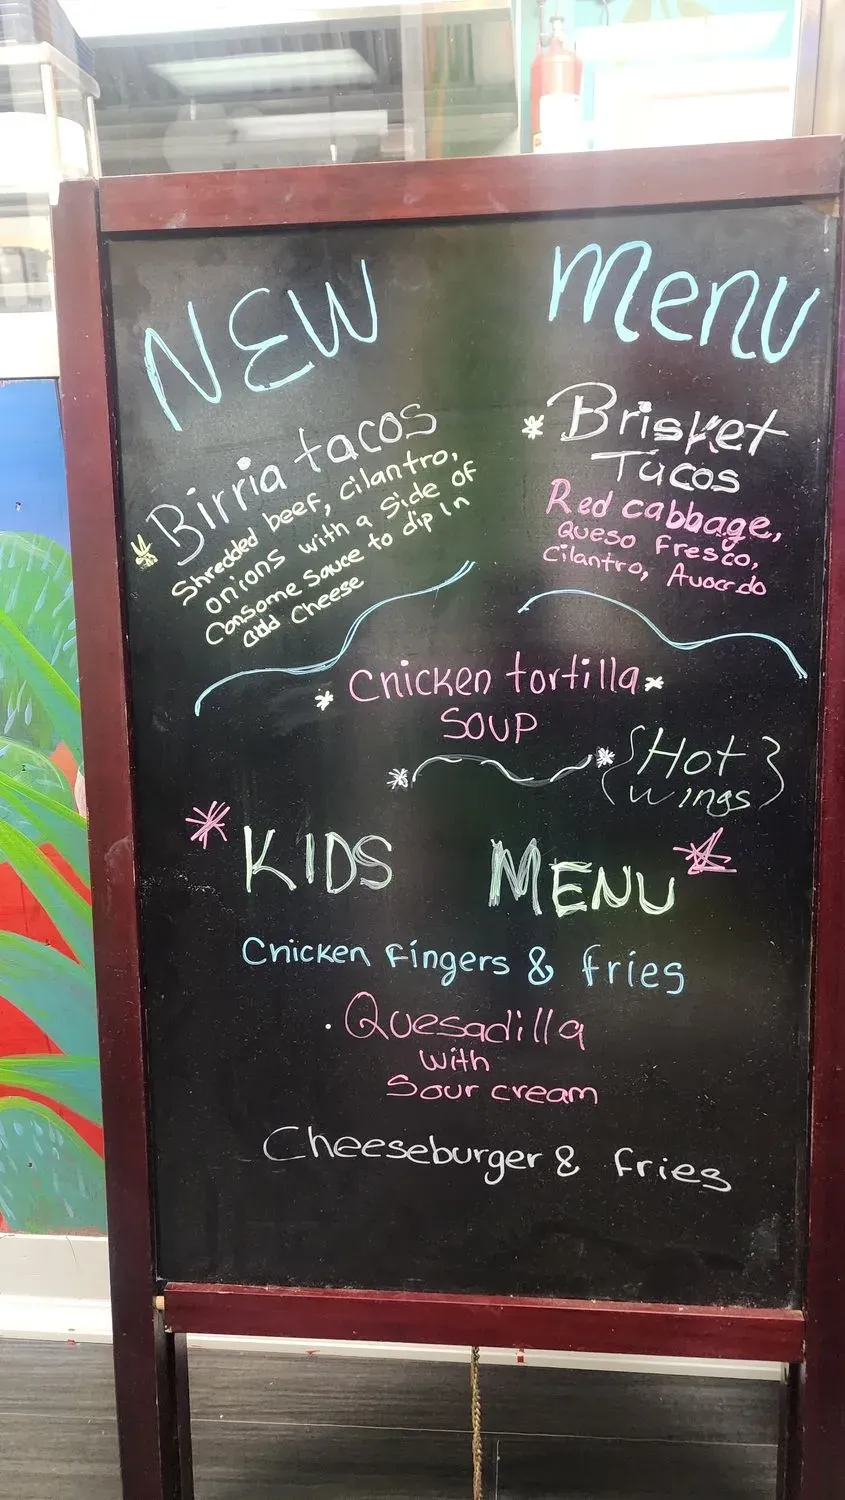 NEW Menu
Birria tacos
Shredded beef, cilantro,
onions with a Side of
Consome Sauce to dip in
add cheese
* Brisket
Tacos
Red cabbage,
Queso Fresco,
Cilantro, Avocado
* Chicken tortilla *
SOUP
{Hot}
{wings}
* KIDS MENU *
Chicken Fingers & fries
. Quesadilla
with
Sour cream
Cheeseburger & fries